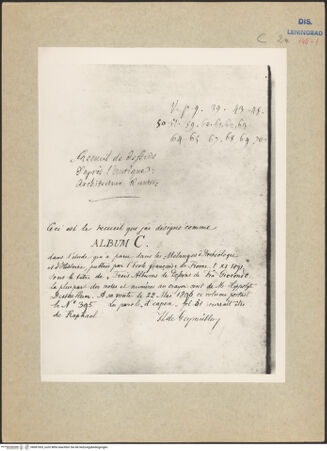 DIS.
LENINGRAD
V. p. 9. 39. 43. 45.
64. 65 67. 68 69. 70
Recueil de Dessins
d'après l'antique
Architecture
Ceci est le recueil que j'ai désigné comme
ALBUM C.
dans l'étude qui a paru dans les Mélanges d'Archéologie
et d'Histoire, publiés par l'école française de Rome. t. XI 1891,
sous le titre de « Trois Albums de dessins de Fra Giocondo.
la plupart des notes et numéros au crayon sont de Mr Hippolyte
Destailleur. A sa vente le 22. Mai 1896 ce volume portait
le No 395
de Raphael.
H de Geymüller